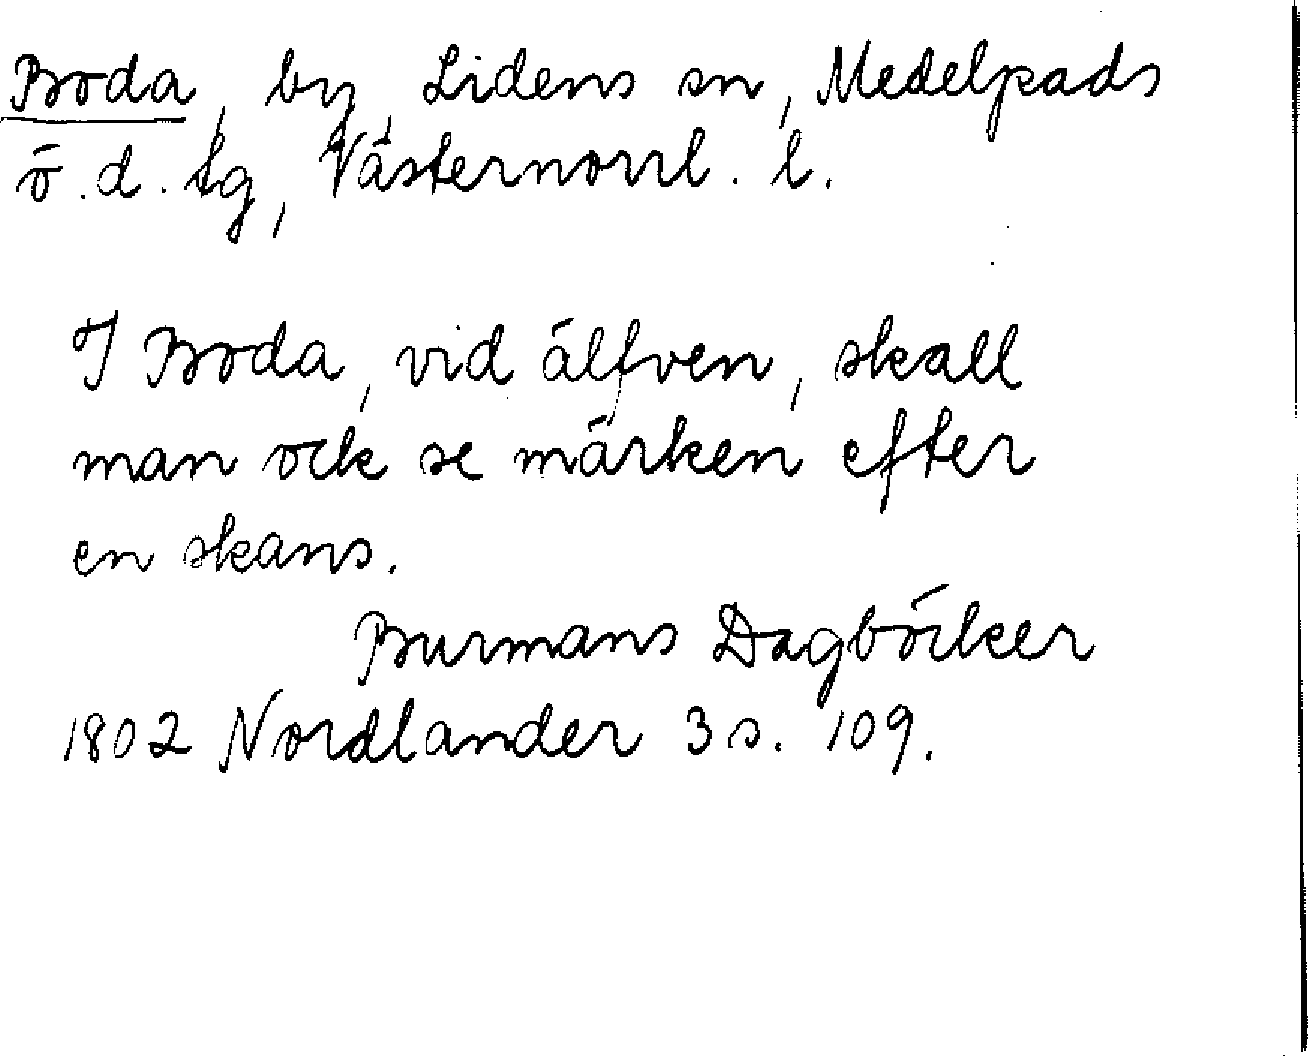 Boda, by, Lidens sn, Medelpads
ö.d. tg, Västernorrl. l.
I Boda, vid älfven, skall
man ock se märken efter
en skans.
Burmans Dagböcker
1802 Nordlander 3 s. 109.